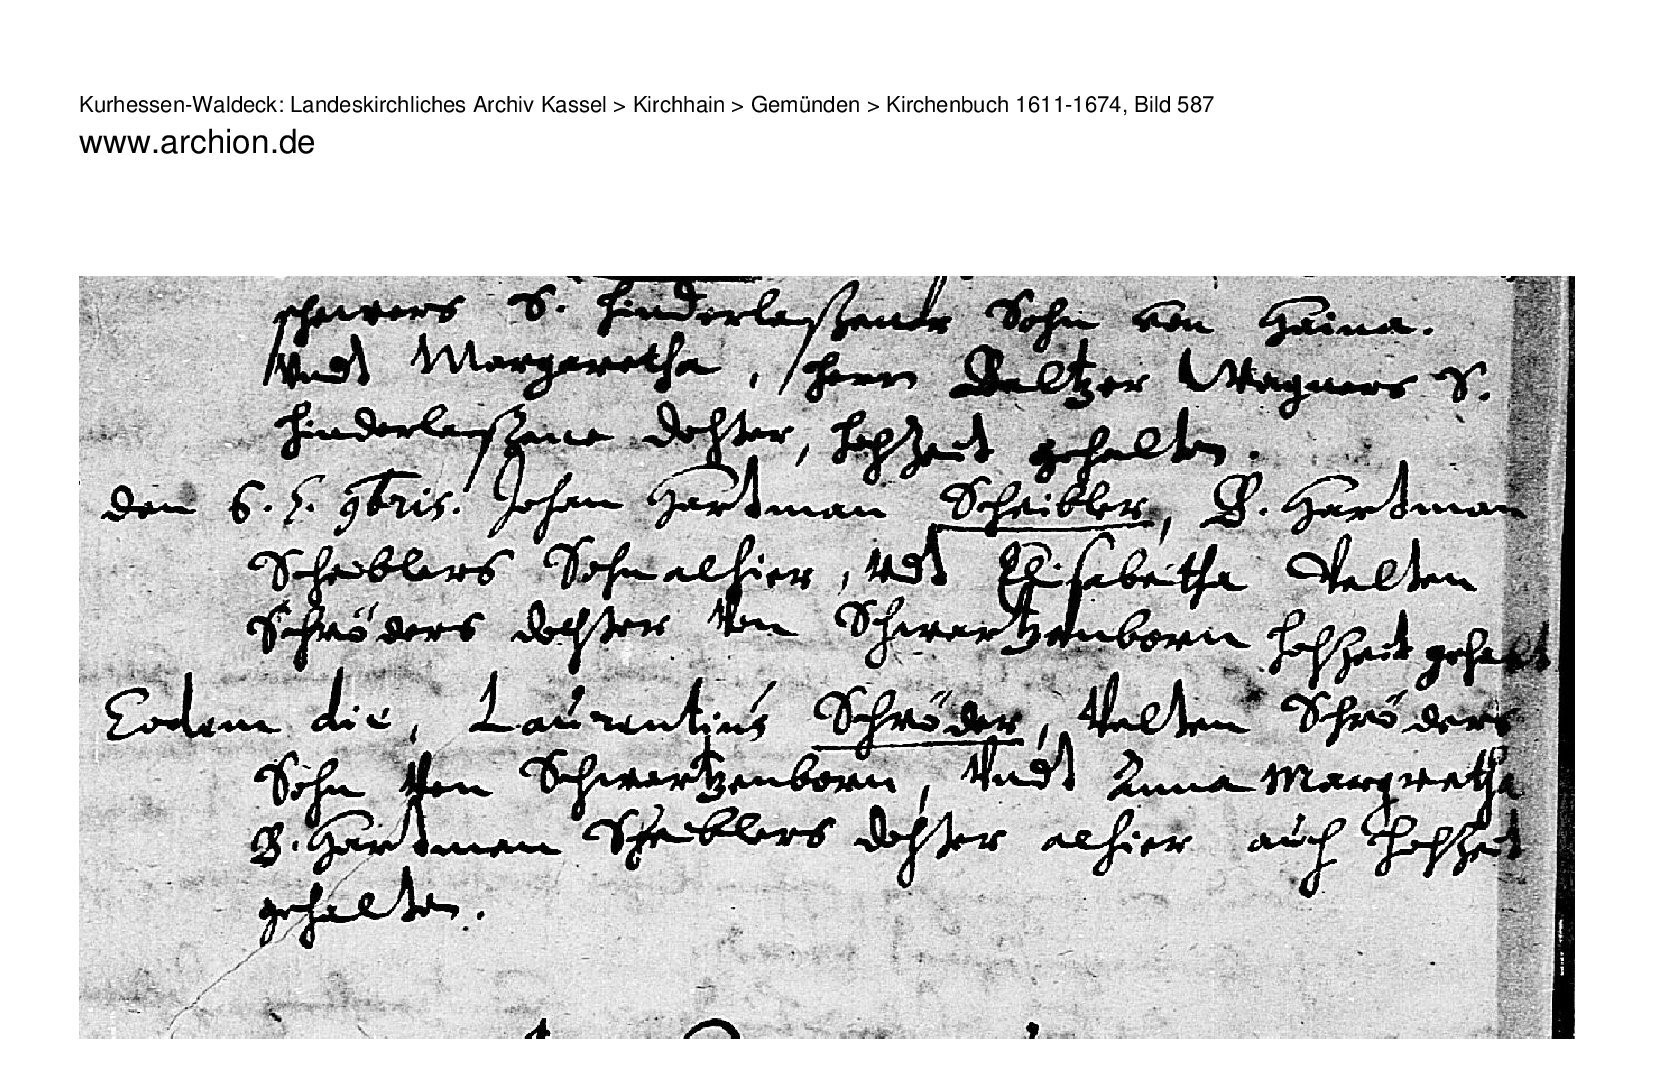 Kurhessen-Waldeck: Landeskirchliches Archiv Kassel > Kirchhain > Gemünden > Kirchenbuch 1611-1674, Bild 587
www.archion.de
S. hinderlaßener Sohn von Haina.
Undt Margaretha, Herrn Baltzer Wagners S.
hinderlaßene dochter, hochzeit gehalten.
den 6. 9bris. Johan Hartman Scheibler, B. Hartman
Scheiblers Sohn alhier, vdt Elisabeitha Velten
Schröders dochter Von Schwartzenborn hochzeit gehalt
Eodem die, Laurentius Schröder, Velten Schröders
Sohn Von Schwartzenborn, Vndt Anna Margretha
B. Hartman Scheiblers dochter alhier auch Hochzeit
gehalten.